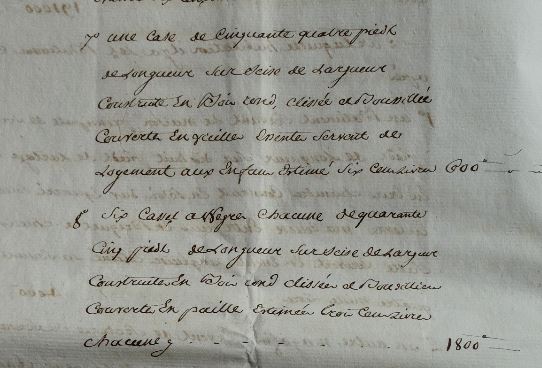 7° une Case de Cinquante quatre pieds
de Longueur Sur Seise de Largeur
Construite En Bois rond, clissée et Bousillée
Couverte En paille servant de
Logement aux Enfans Estimé Six Cens Livres 600"
8° Six Cases a Negres chacune de quarante
Cinq pieds de Longueur Sur Seise de Largeur
Construites En Bois rond clissées et Bousillées
Couverte En paille Estimées trois Cens Livres
chacune 1800"